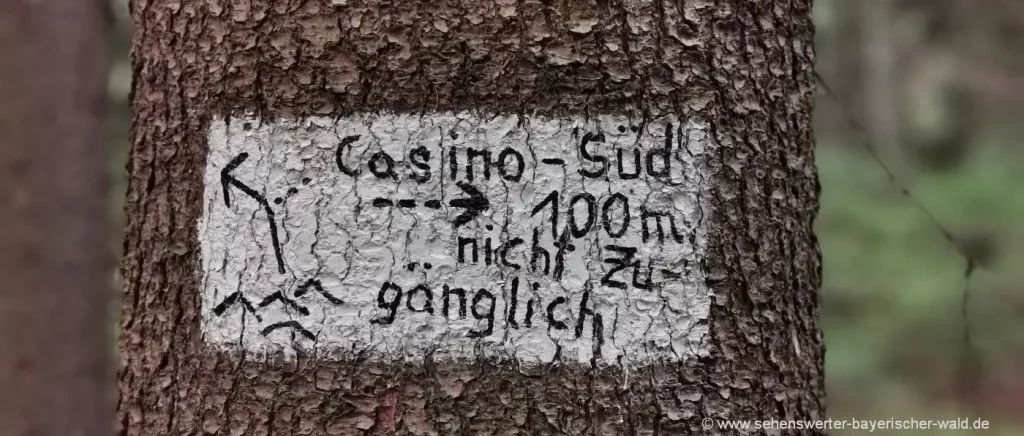 Casino-Süd
100m
nicht zu-
gänglich
© www.sehenswerter-bayerischer-wald.de